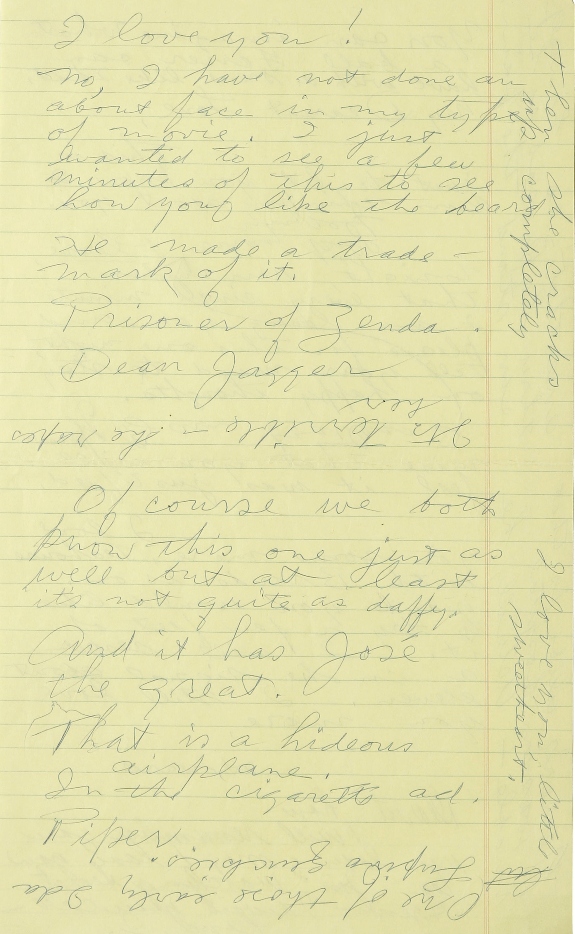 I love you!
No, I have not done an
about face in my type
of movie. I just
wanted to see a few
minutes of this to see
how you like the beard
He made a trade-
mark of it.
Prisoner of Zenda.
Dean Jagger
It's terrible - he rapes
her
Of course we both
know this one just as
well but at least
it's not quite as daffy.
And it has José
the great.
That is a hideous
airplane.
In the cigarette ad.
Piper
One of those early Ida
Lupino quickies.
then she cracks
up completely
I love you, little
sweetheart.